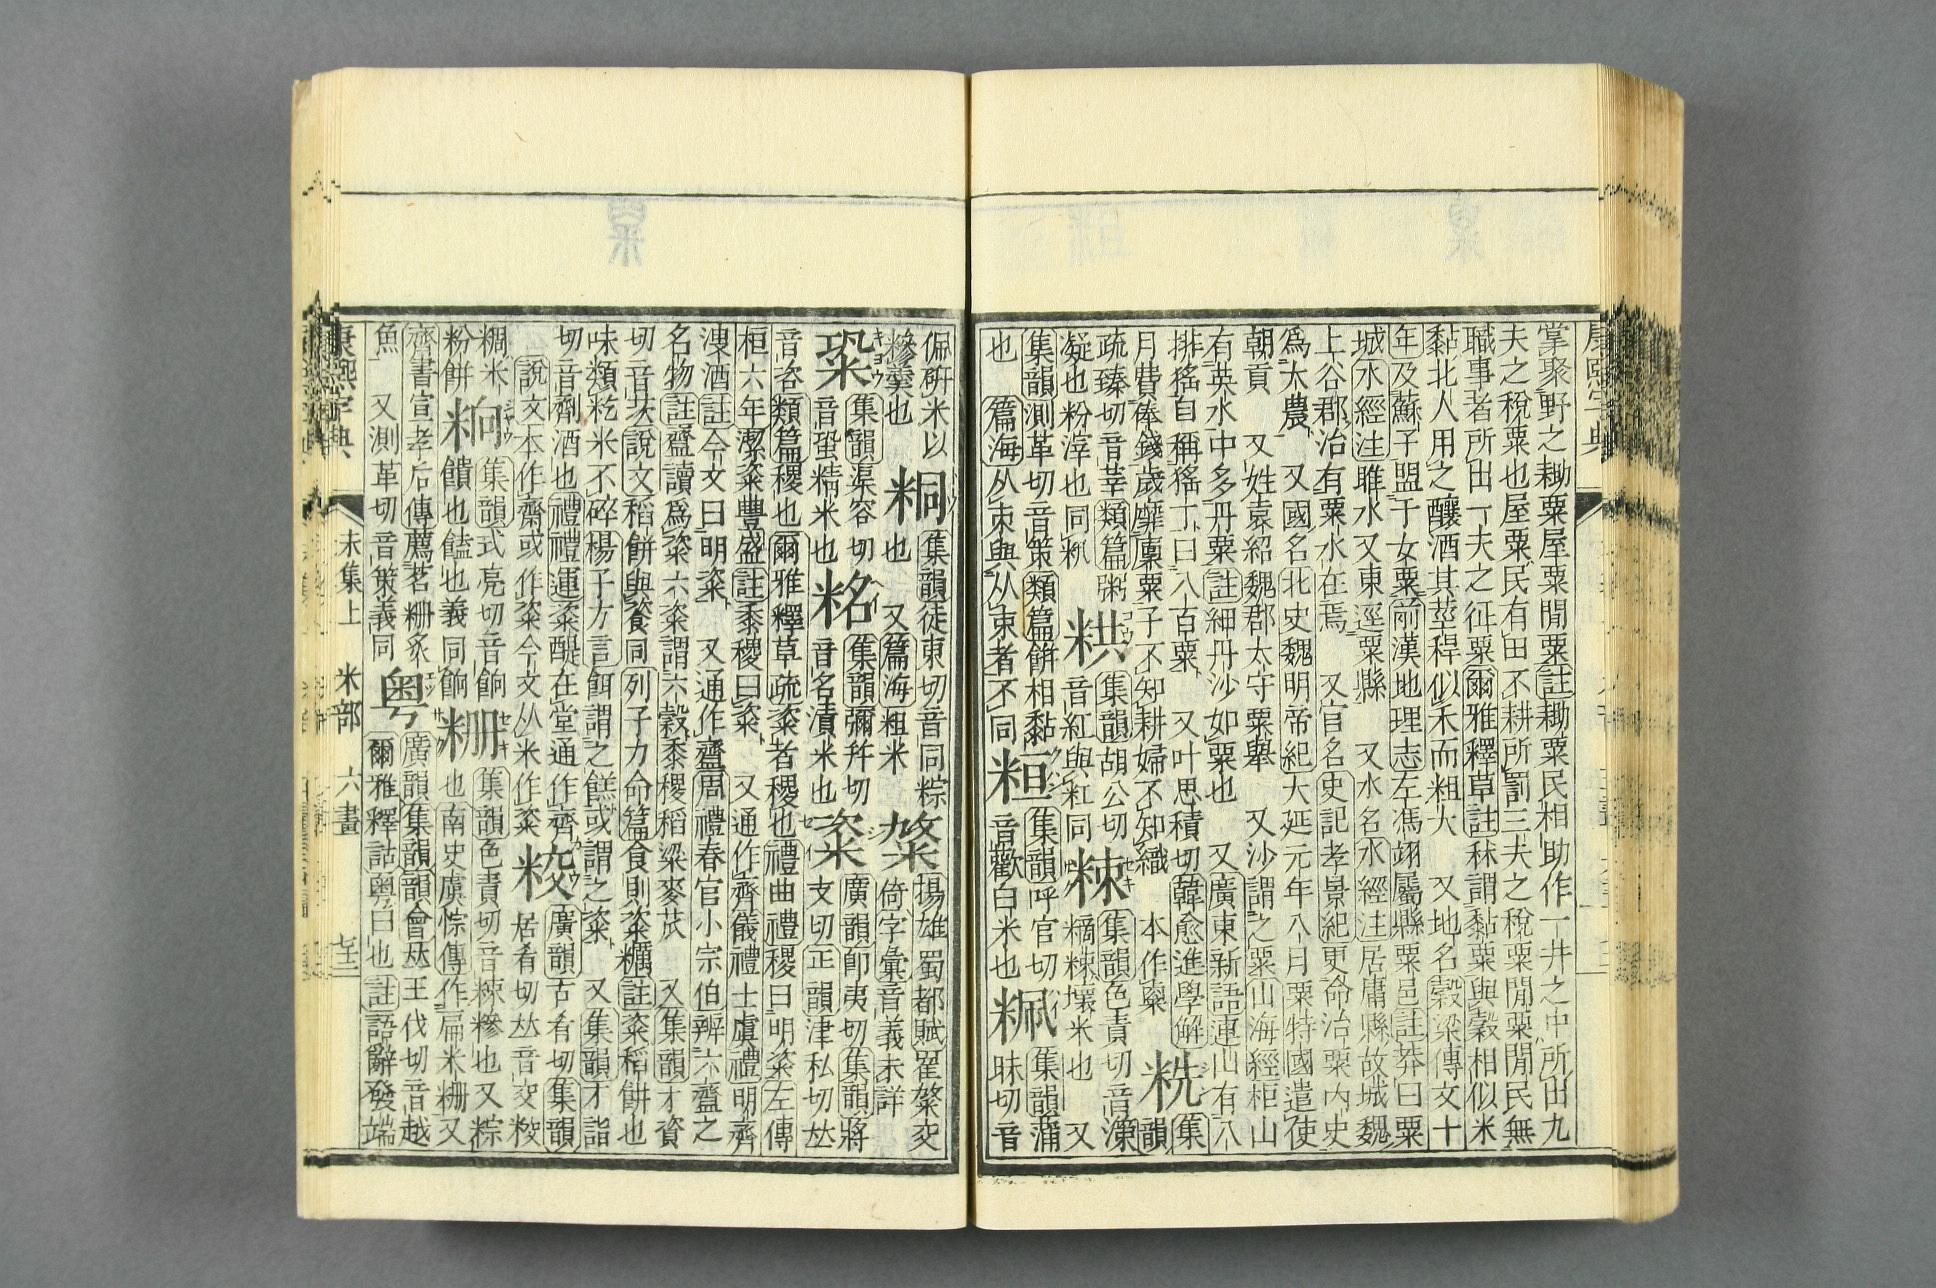 掌聚野之耡粟屋粟閒粟註耡粟民相助作一井之中所出九
夫之稅粟也屋粟民有田不耕所罰三夫之稅粟閒粟閒民無
職事者所出一夫之征粟爾雅釋草註秫謂黏粟與穀相似米
黏北人用之釀酒其莖稈似禾而粗大 又地名穀梁傳文十
年及蘇子盟于女粟前漢地理志左馮翊屬縣粟邑註莽曰粟
城水經注睢水又東逕粟縣 又水名水經注居庸縣故城魏
上谷郡治有粟水在焉 又官名史記孝景紀更命治粟內史
爲大農 又國名北史魏明帝紀大延元年八月粟特國遣使
朝貢 又姓袁紹魏郡太守粟舉 又沙謂之粟山海經柜山
有英水中多丹粟註細丹沙如粟也 又廣東新語連山有八
排猺自稱猺丁曰八百粟 又叶思積切韓愈進學解
月費俸錢歲靡廩粟子不知耕婦不知織 本作㮚 粁 集韻
疏臻切音莘類篇粥
凝也粉滓也同籸 粠 集韻胡公切
音紅與紅同 粣 集韻色責切音溹
糏粣壞米也 又
集韻測革切音策類篇餅相黏
也 篇海从朿與从束者不同 䊐 集韻呼官切
音歡白米也 𥹝 集韻蒲
昧切音
偑䂳米以
糝羹也 粡 集韻徒東切音同粽
也 又篇海粗米 䊎 揚雄蜀都賦䍨䊎交
倚字彙音義未詳
䂬 集韻渠容切
音蛩精米也 䊅 集韻彌幷切
音名漬米也 粢 廣韻卽夷切集韻將
支切正韻津私切𠀤
音咨類篇稷也爾雅釋草疏粢者稷也禮曲禮稷曰明粢左傳
桓六年潔粢豐盛註黍稷曰粢 又通作齊儀禮士虞禮明齊
溲酒註今文曰明粢 又通作齍周禮春官小宗伯辨六齍之
名物註齍讀爲粢六粢謂六穀黍稷稻粱麥苽 又集韻才資
切音茨說文稻餠與餈同列子力命篇食則粢糲註粢稻餠也
味類籺米不碎楊子方言餌謂之餻或謂之粢 又集韻才詣
切音劑酒也禮禮運粢醍在堂通作齊
說文本作齋或作粢今文从米作粢 䊏 廣韻古肴切集韻
居肴切𠀤音交䊏
糉米 粡 集韻式亮切音餉
粉餅 饋也饁也義同餉 粣 集韻色責切音粣糝也又粽
也南史虞悰傳作扁米粣又
齊書宣孝后傳薦茗粣炙
魚 又測革切音策義同 粤 廣韻集韻韻會𠀤王伐切音越
爾雅釋詁粤曰也註語辭發端
康熙字典 未集上 米部 六畫